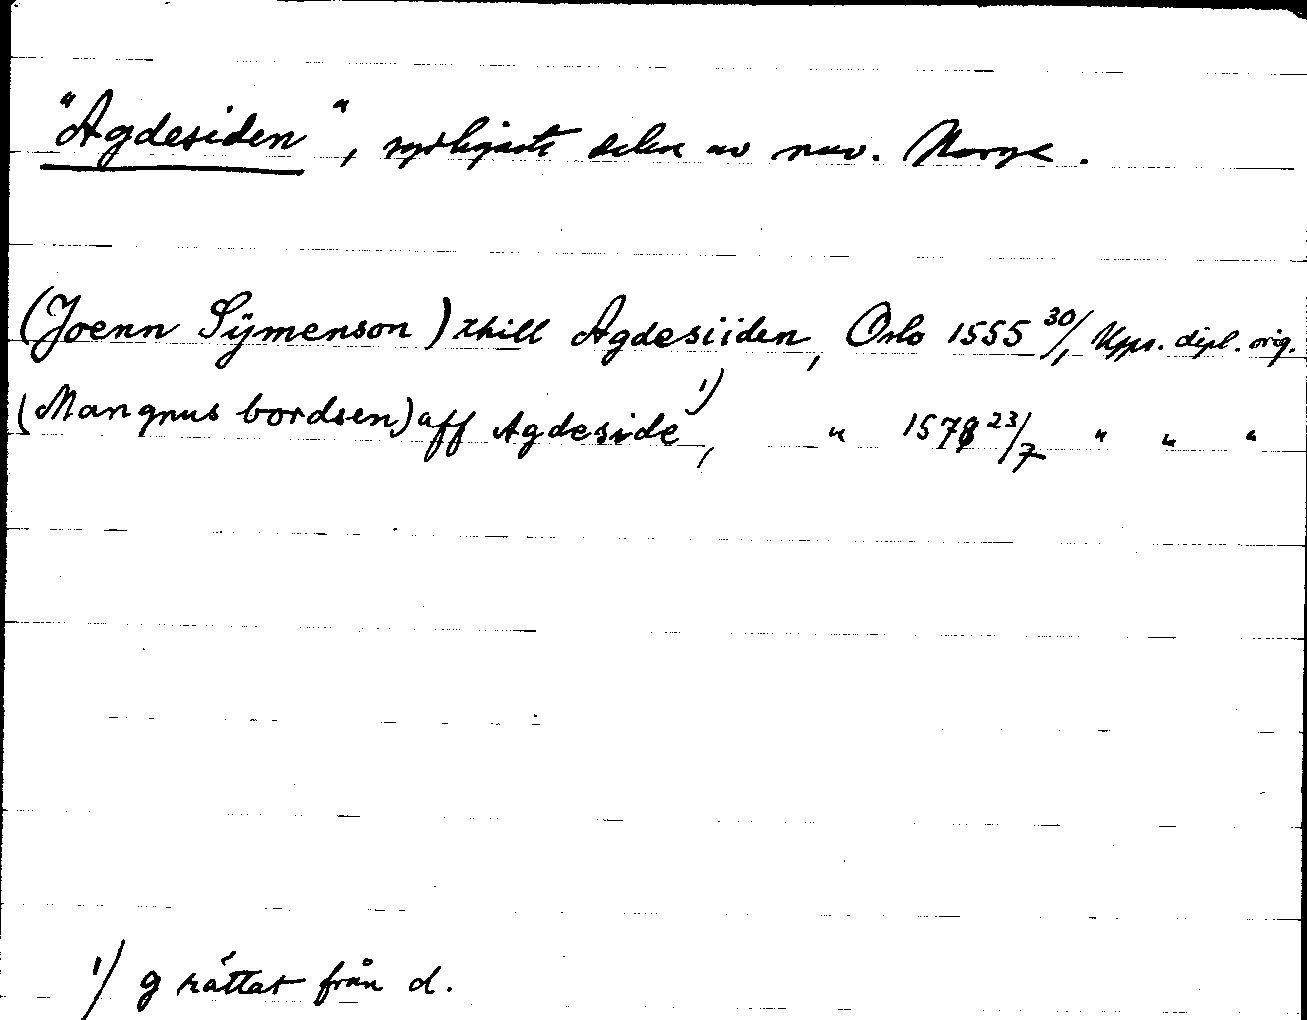 "Agdesiden", sydligaste delen av nuv. Norge.
(Joenn Sÿmenson) thill Agdesiiden, Oslo 1555 30/1, Upps. dipl. orig.
(Mangnus bordsen) aff Agdeside 1), " 1578 23/7 " " "
1) g rättat från d.